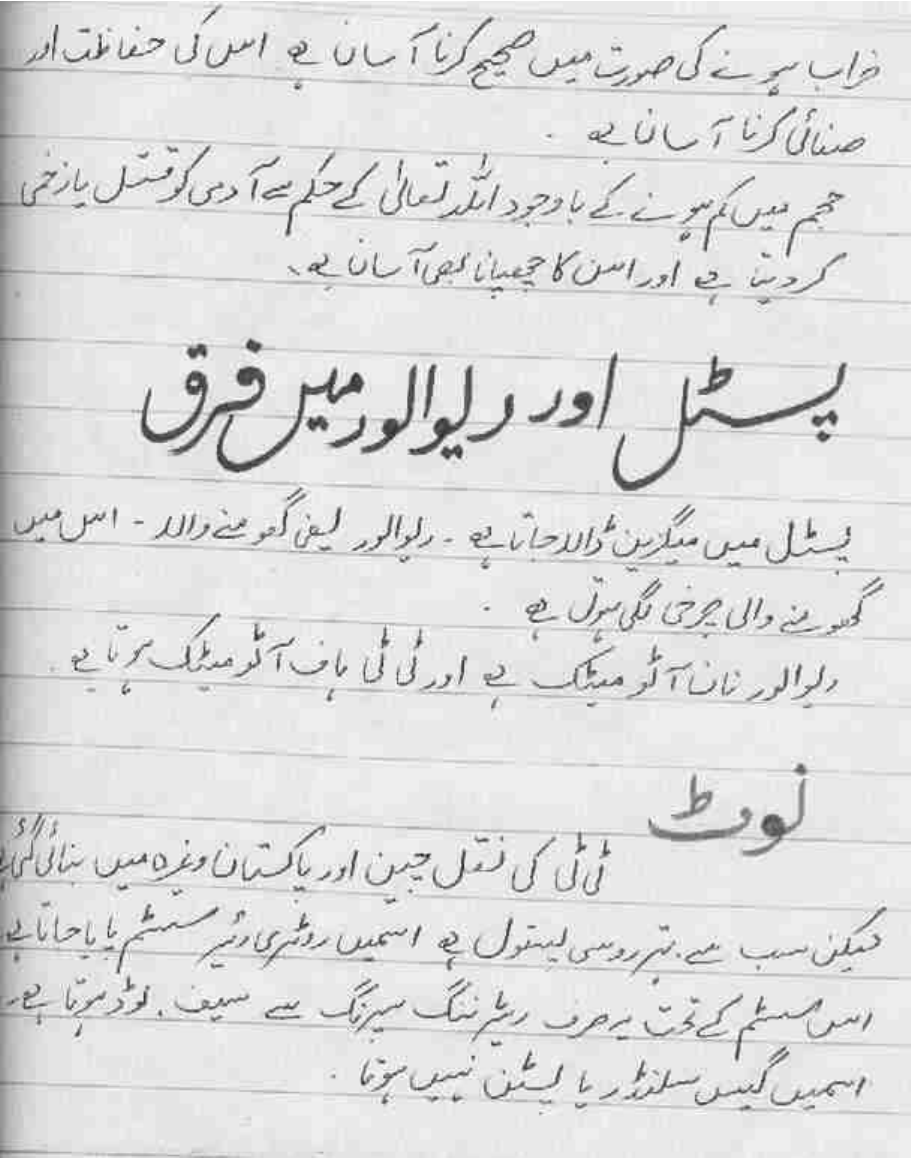 خراب ہونے کی صورت میں صحیح کرنا آسان ہے اس کی حفاظت اور
صفائی کرنا آسان ہے .
حجم میں کم ہونے کے باوجود اللہ تعالیٰ کے حکم سے آدمی کو قتل یا زخمی
کر دیتا ہے اور اس کا چھپانا بھی آسان ہے۔
پسٹل اور ریوالور میں فرق
پسٹل میں میگزین ڈالا جاتا ہے - ریوالور یعنی گھومنے والا - اس میں
گھومنے والی چرخی لگی ہوتی ہے .
ریوالور نان آٹومیٹک ہے اور ٹی ٹی ہاف آٹومیٹک ہوتا ہے .
نوٹ
ٹی ٹی کی نقل چین اور پاکستان وغیرہ میں بنائی گئی ہے
لیکن سب سے بہتر روسی پستول ہے اسمیں سسٹم پایا جاتا ہے
اس سسٹم کے تحت یہ صرف ریٹرننگ سپرنگ سے سیف . لوڈ ہوتا ہے۔
اسمیں گیس سلنڈر یا پسٹن نہیں ہوتا .